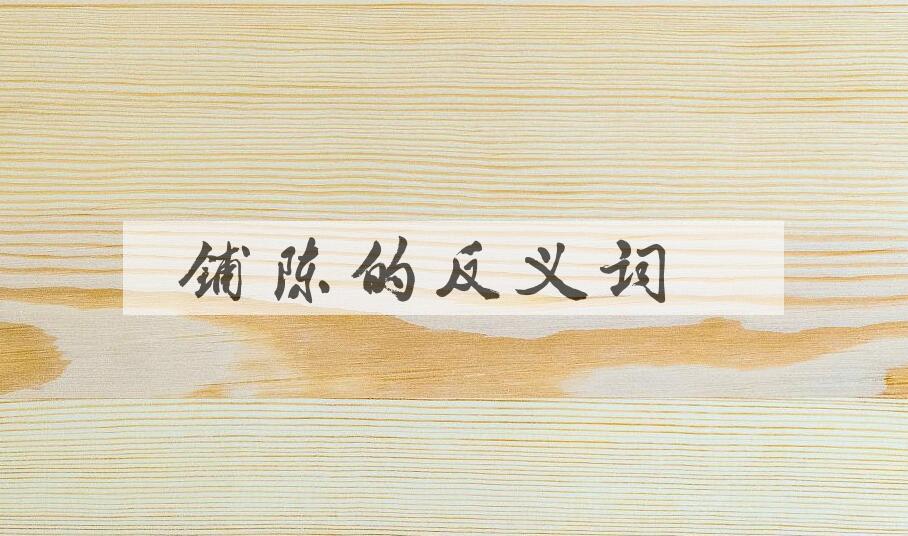 铺陈的反义词